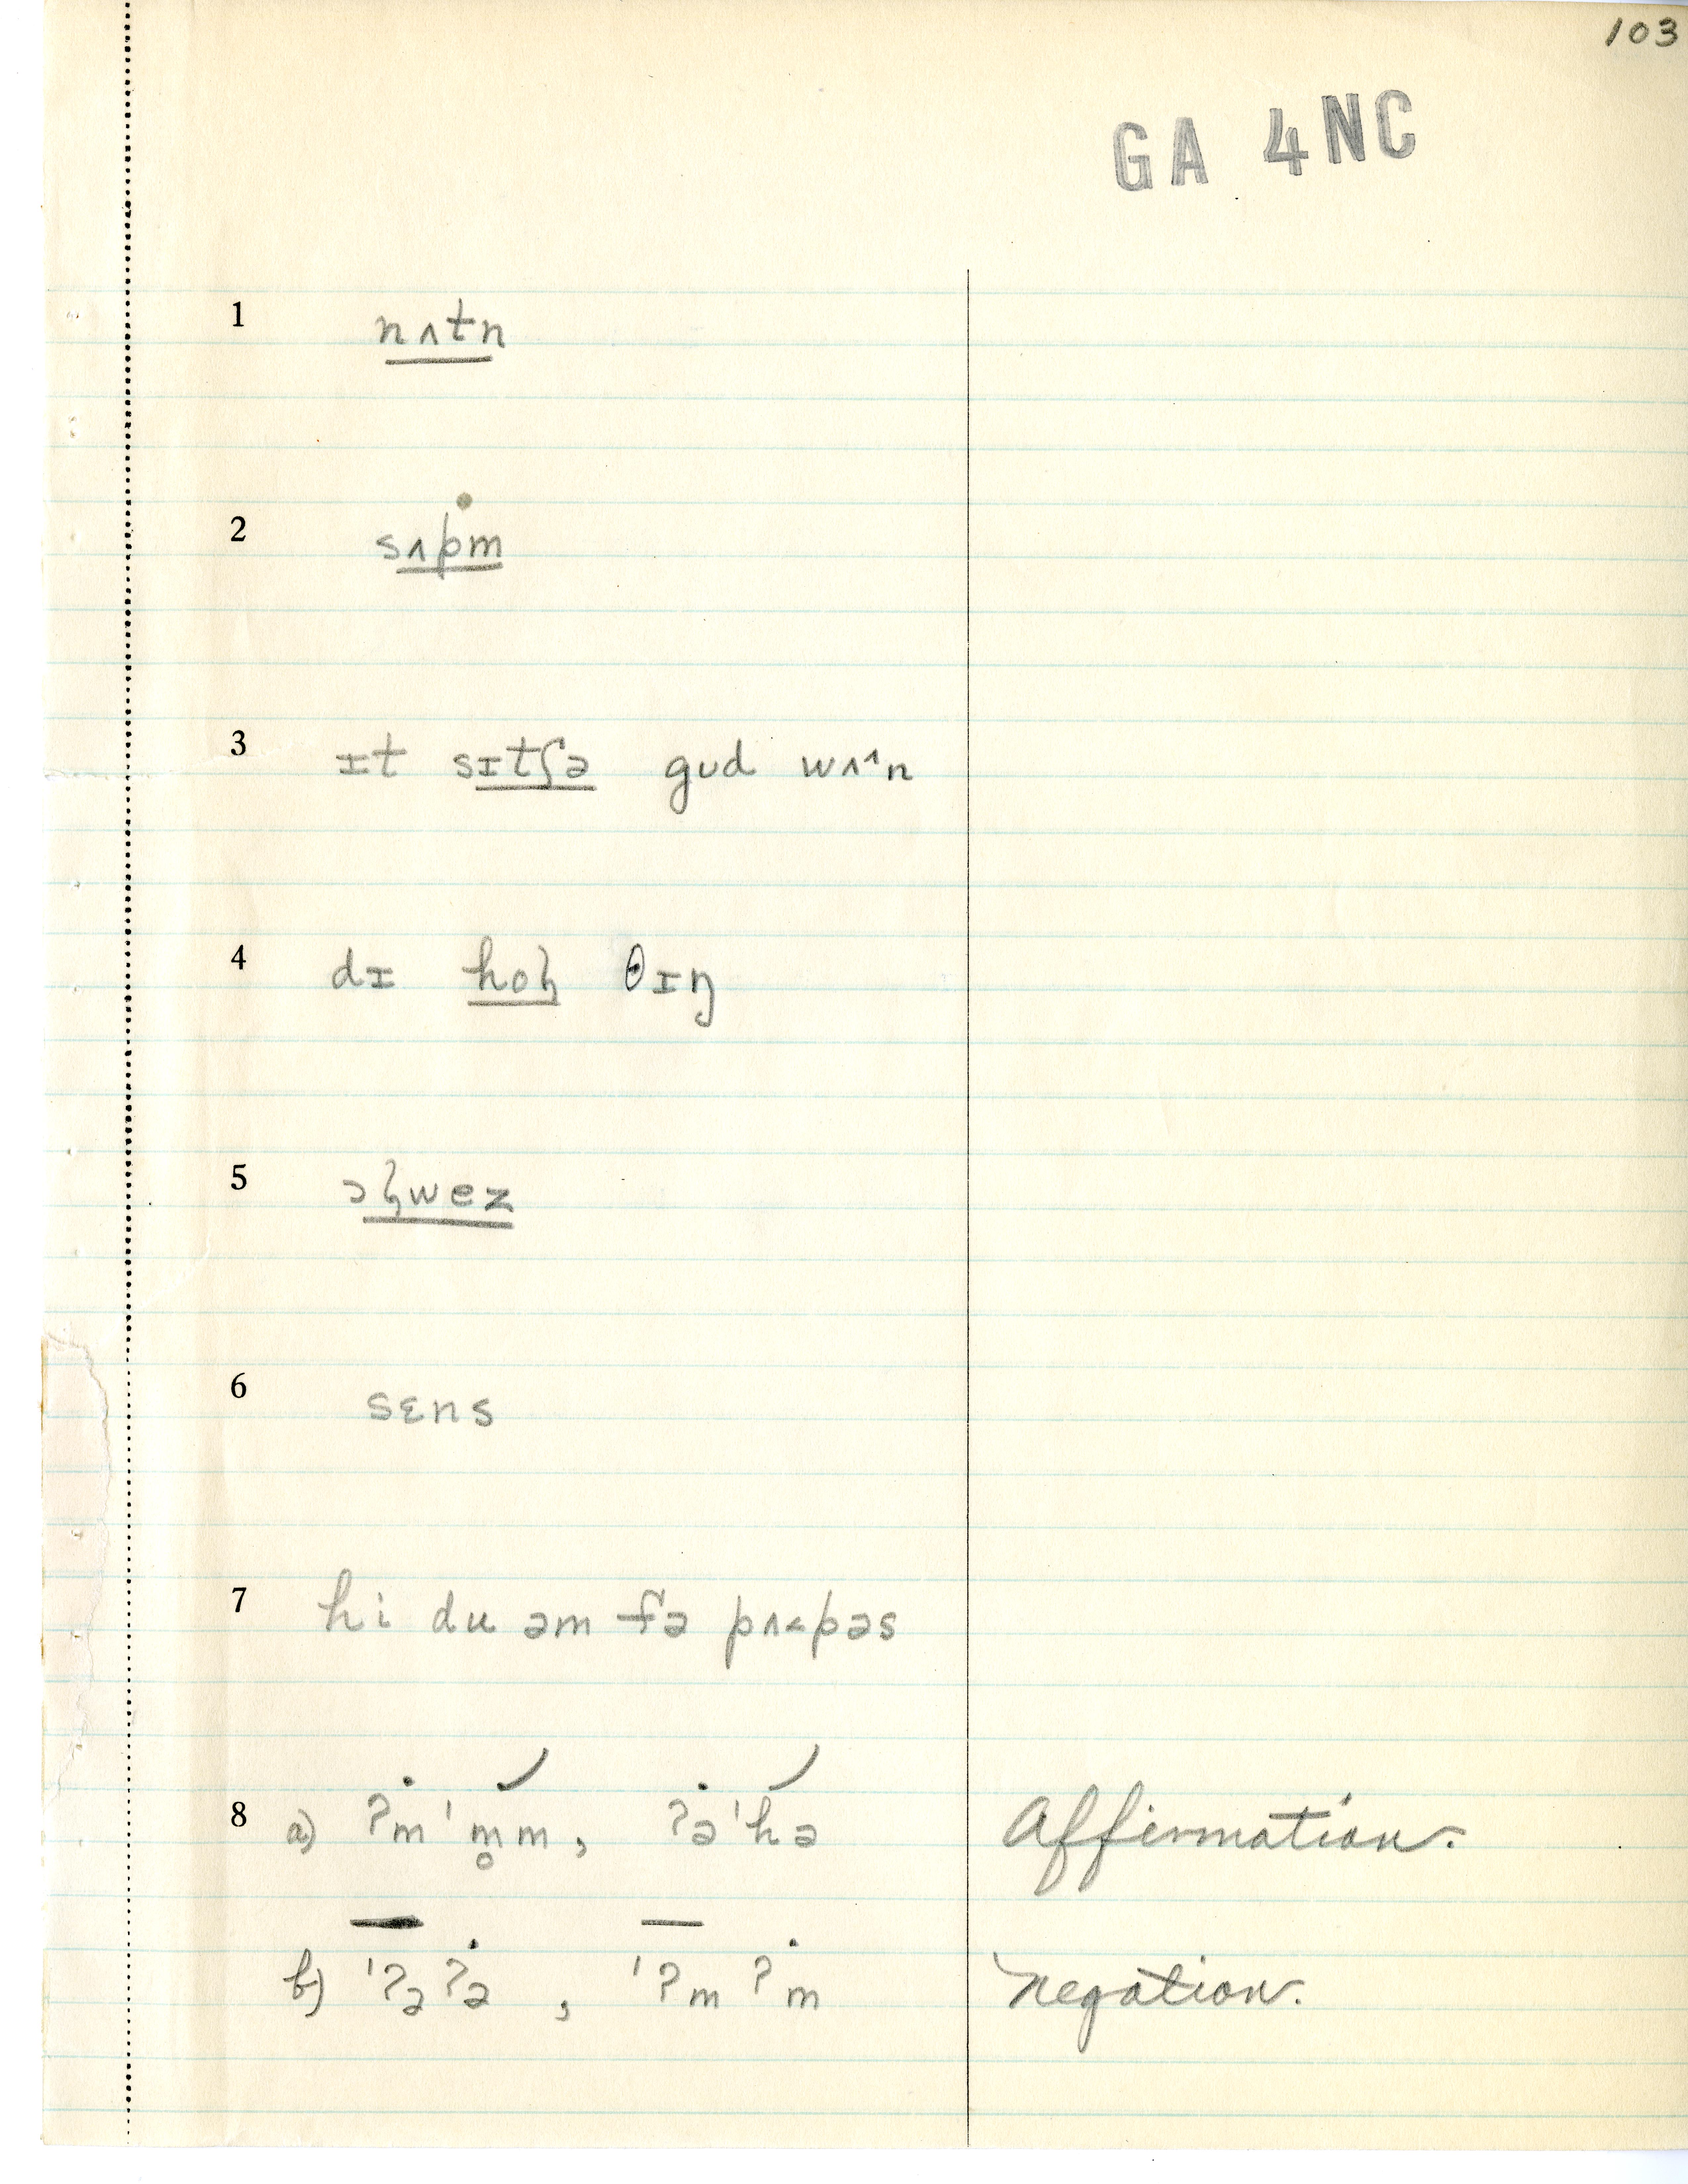 103
GA 4NC
1 nʌtn
2 sʌpm
3 ɪt sɪtʃə gud wʌ^n
4 dɪ hoɮ θɪŋ
5 ɔɮwez
6 sɛns
7 hi du əm fə pʌ˂pəs
8 a) ʔm ˈm̥m, ʔə ˈhə Affirmation.
b) ˈʔə ʔə, ˈʔm ʔm negation.